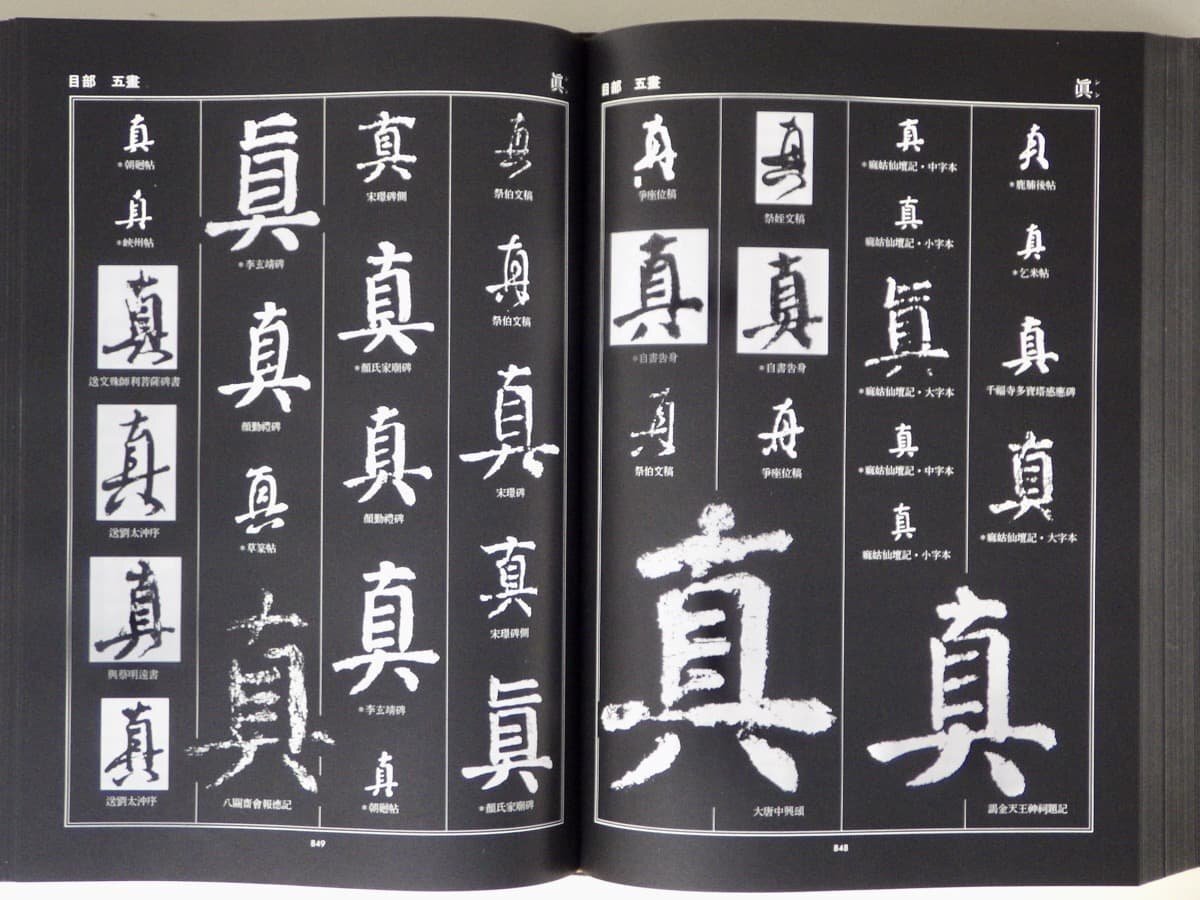 眞
目部 五畫
真
*鹿脯後帖
真
*乞米帖
真
千福寺多寶塔感應碑
真
*麻姑仙壇記・大字本
真
謁金天王神祠題記
真
*麻姑仙壇記・中字本
真
麻姑仙壇記・小字本
眞
*麻姑仙壇記・大字本
真
*麻姑仙壇記・中字本
真
麻姑仙壇記・小字本
真
祭姪文稿
真
*自書告身
真
爭座位稿
真
大唐中興頌
真
爭座位稿
真
*自書告身
真
祭伯文稿
848
眞
目部 五畫
真
祭伯文稿
真
祭伯文稿
真
宋璟碑
真
宋璟碑側
眞
*顏氏家廟碑
真
宋璟碑側
真
*顏氏家廟碑
真
顏勤禮碑
真
*李玄靖碑
真
*朝廻帖
眞
*李玄靖碑
真
顏勤禮碑
真
*草篆帖
真
八關齋會報德記
真
*朝廻帖
真
*峽州帖
真
送文殊師利菩薩碑書
真
送劉太沖序
真
與蔡明遠書
真
送劉太沖序
849